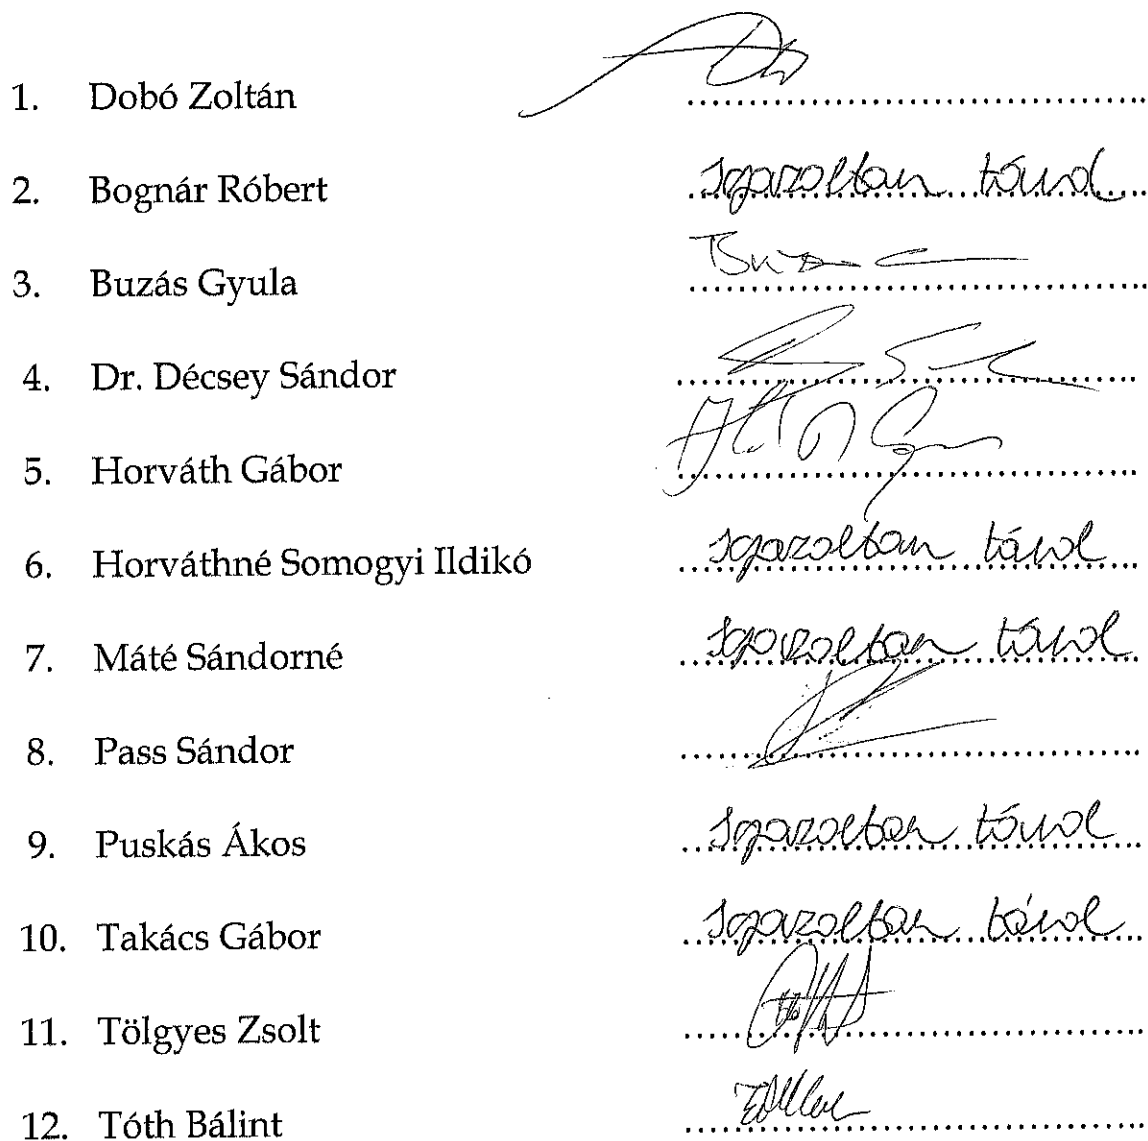 1. Dobó Zoltán
2. Bognár Róbert Igazoltan távol
3. Buzás Gyula
4. Dr. Décsey Sándor
5. Horváth Gábor
6. Horváthné Somogyi Ildikó Igazoltan távol
7. Máté Sándorné Igazoltan távol
8. Pass Sándor
9. Puskás Ákos Igazoltan távol
10. Takács Gábor Igazoltan távol
11. Tölgyes Zsolt
12. Tóth Bálint